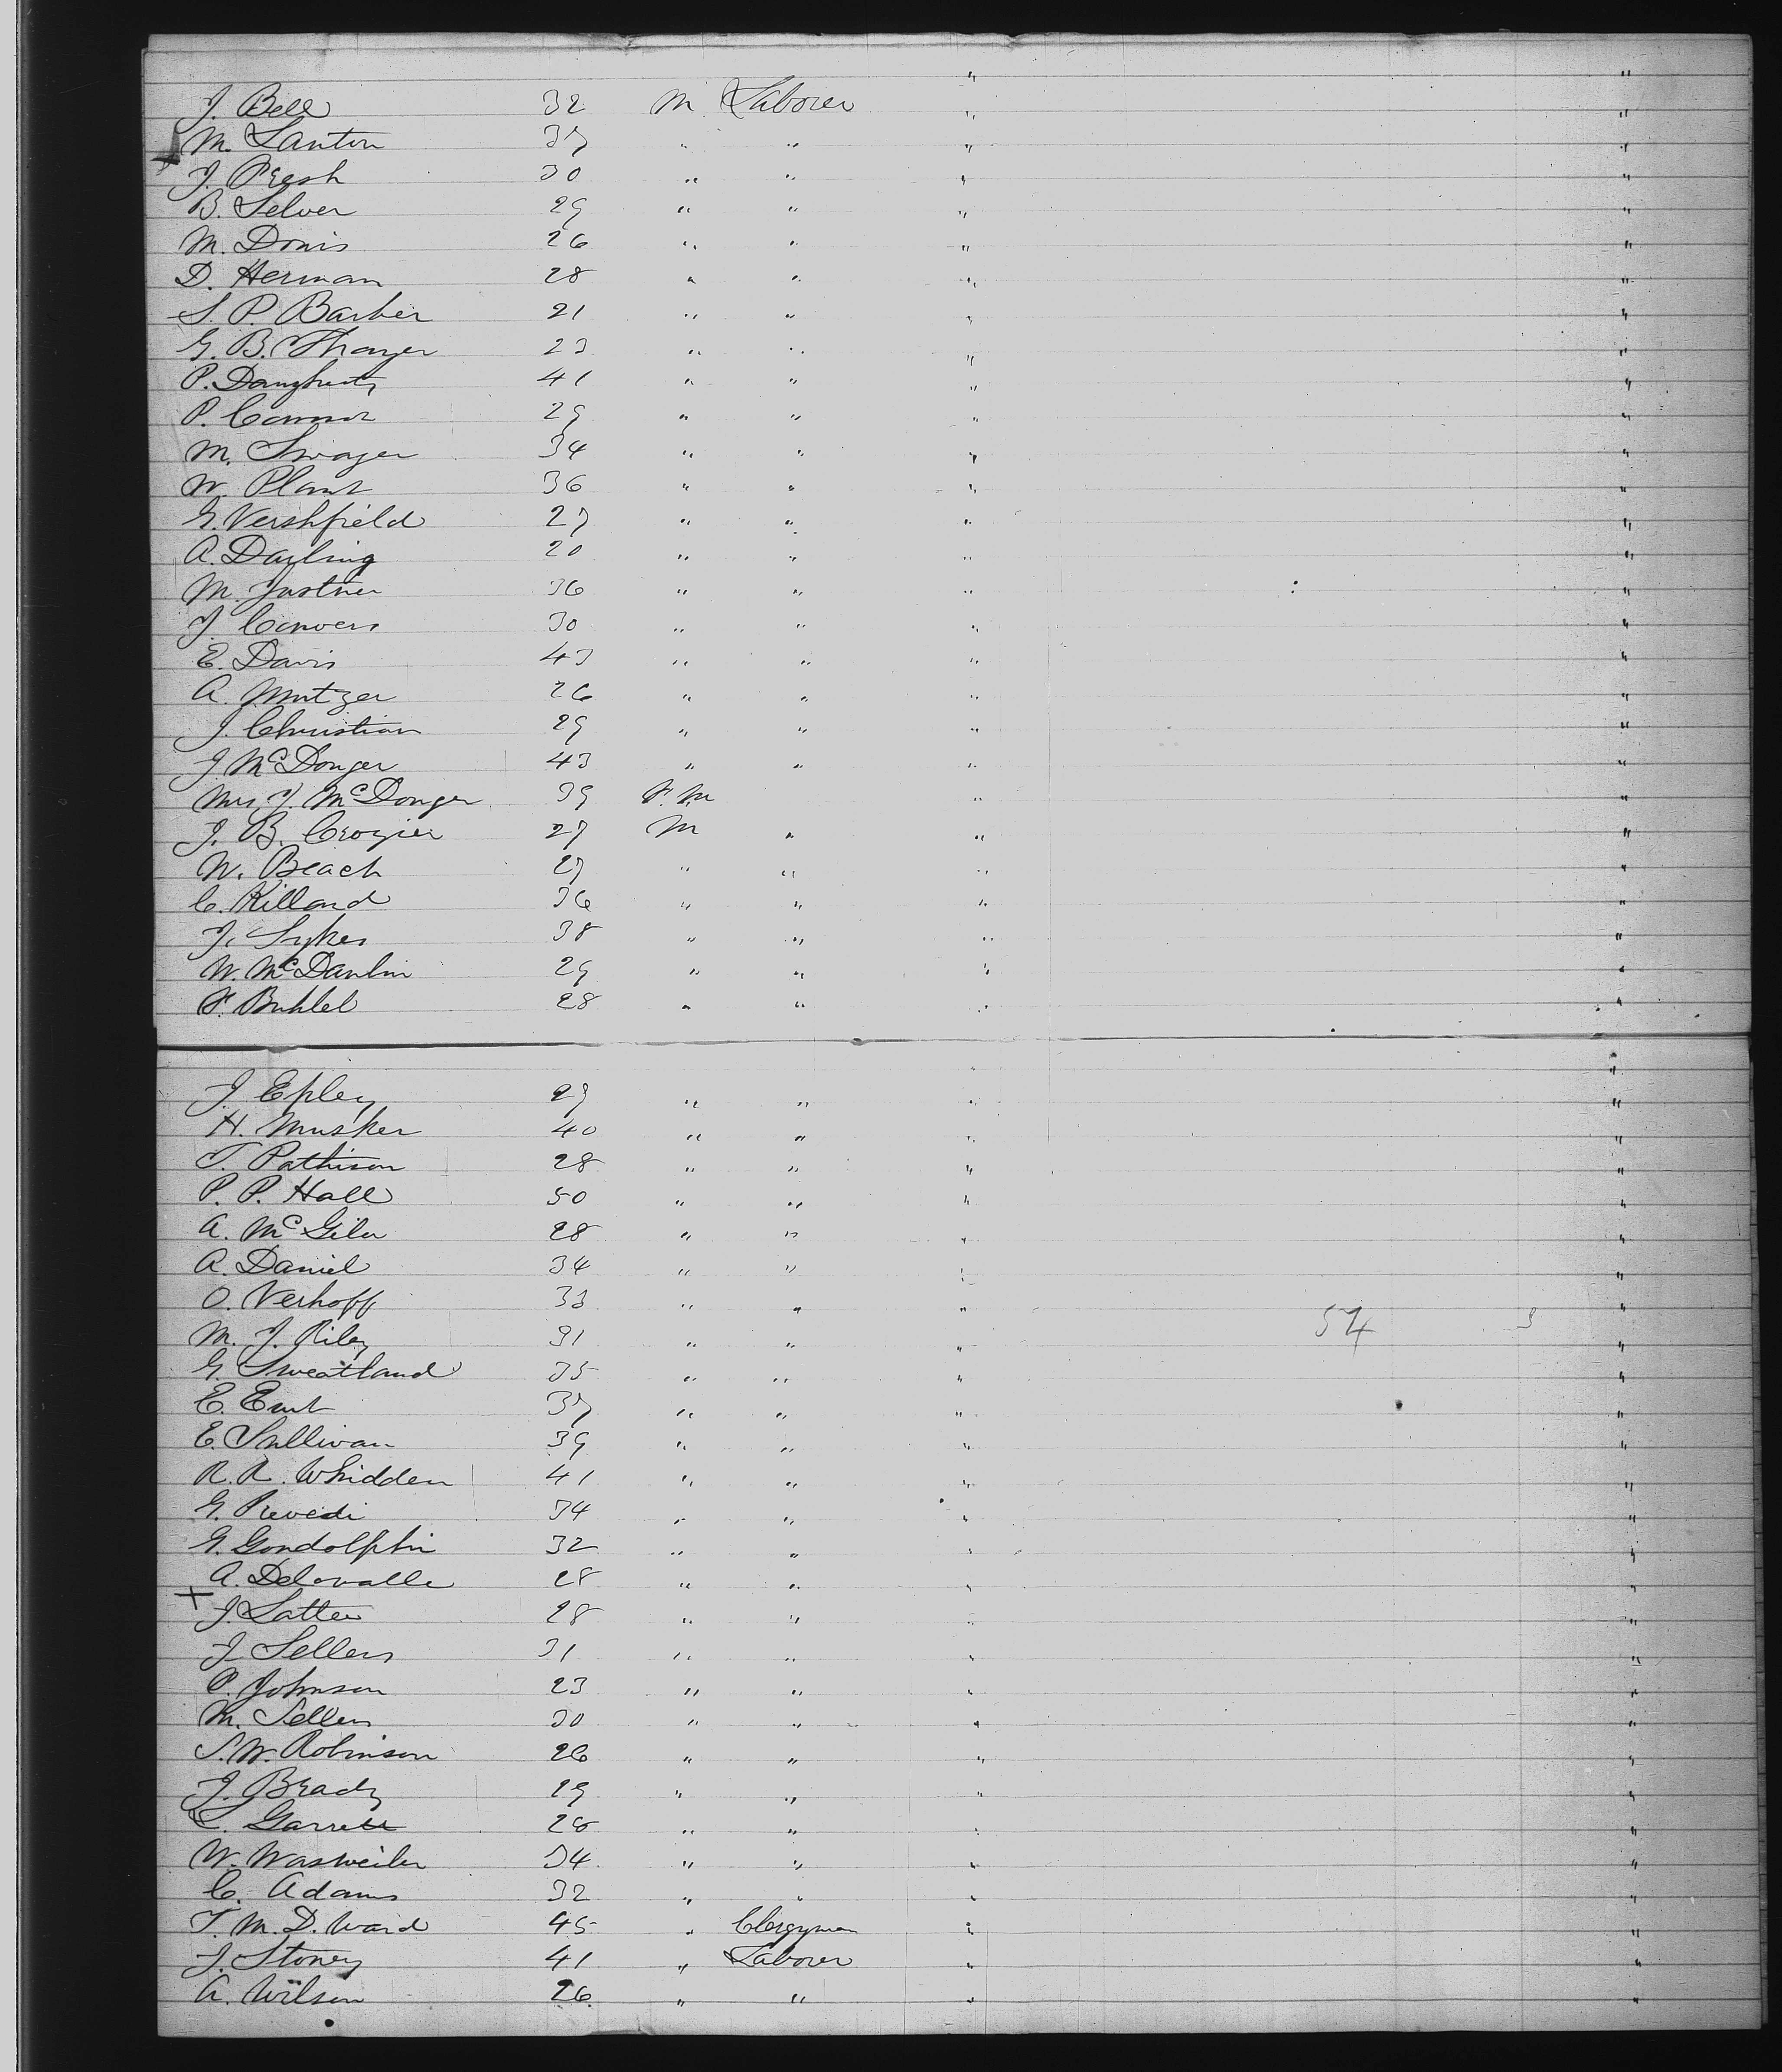 " "
J. Bell 32 M. Laborer " "
M. Lanton 37 " " " "
J. Presh 30 " " " "
B. Selver 29 " " " "
M. Donis 26 " " " "
D. Herman 28 " " " "
S. P. Barber 21 " " " "
G. B. Thayer 23 " " " "
P. Daugherty 41 " " " "
P. Connor 29 " " " "
M. Swager 34 " " " "
W. Plant 36 " " " "
G. Vershfield 27 " " " "
A. Darling 20 " " " "
M. Justner 36 " " " "
J. Convers 30 " " " "
E. Davis 43 " " " "
A. Mutzer 26 " " " "
J. Christian 29 " " " "
J McDonger 43 " " " "
Mrs J. McDonger 39 F. M " "
J. B. Crozier 27 M " " "
W. Beach 27 " " " "
C. Killand 36 " " " "
J. Sykes 38 " " " "
W. McDanlin 29 " " " "
F. Buhlel 28 " " " "
"
J Epley 29 " " " "
H. Musker 40 " " " "
T. Pathison 28 " " " "
P. P. Hall 50 " " " "
A. McGiler 28 " " " "
A. Daniel 34 " " " "
O. Verhoff 33 " " " "
M. J. Riley 31 " " " 54 "
G. Sweatland 35 " " " "
E. Ernt 37 " " " "
E. Sullivan 39 " " " "
R. R. Whidden 41 " " " "
G. Prevedi 34 " " " "
G. Gondolphin 32 " " " "
A. Delavalle 28 " " " "
+ J. Latter 28 " " " "
J Sellers 31 " " " "
P. Johnson 23 " " " "
M. Sellers 30 " " " "
S. W. Robinson 26 " " " "
J. Brady 29 " " " "
L. Garrett 28 " " " "
W. Wasweiler 34 " " " "
C. Adams 32 " " " "
T. M. D. Ward 45 " Clergyman " "
J. Stoney 41 " Laborer " "
A. Wilson 26 " " " "